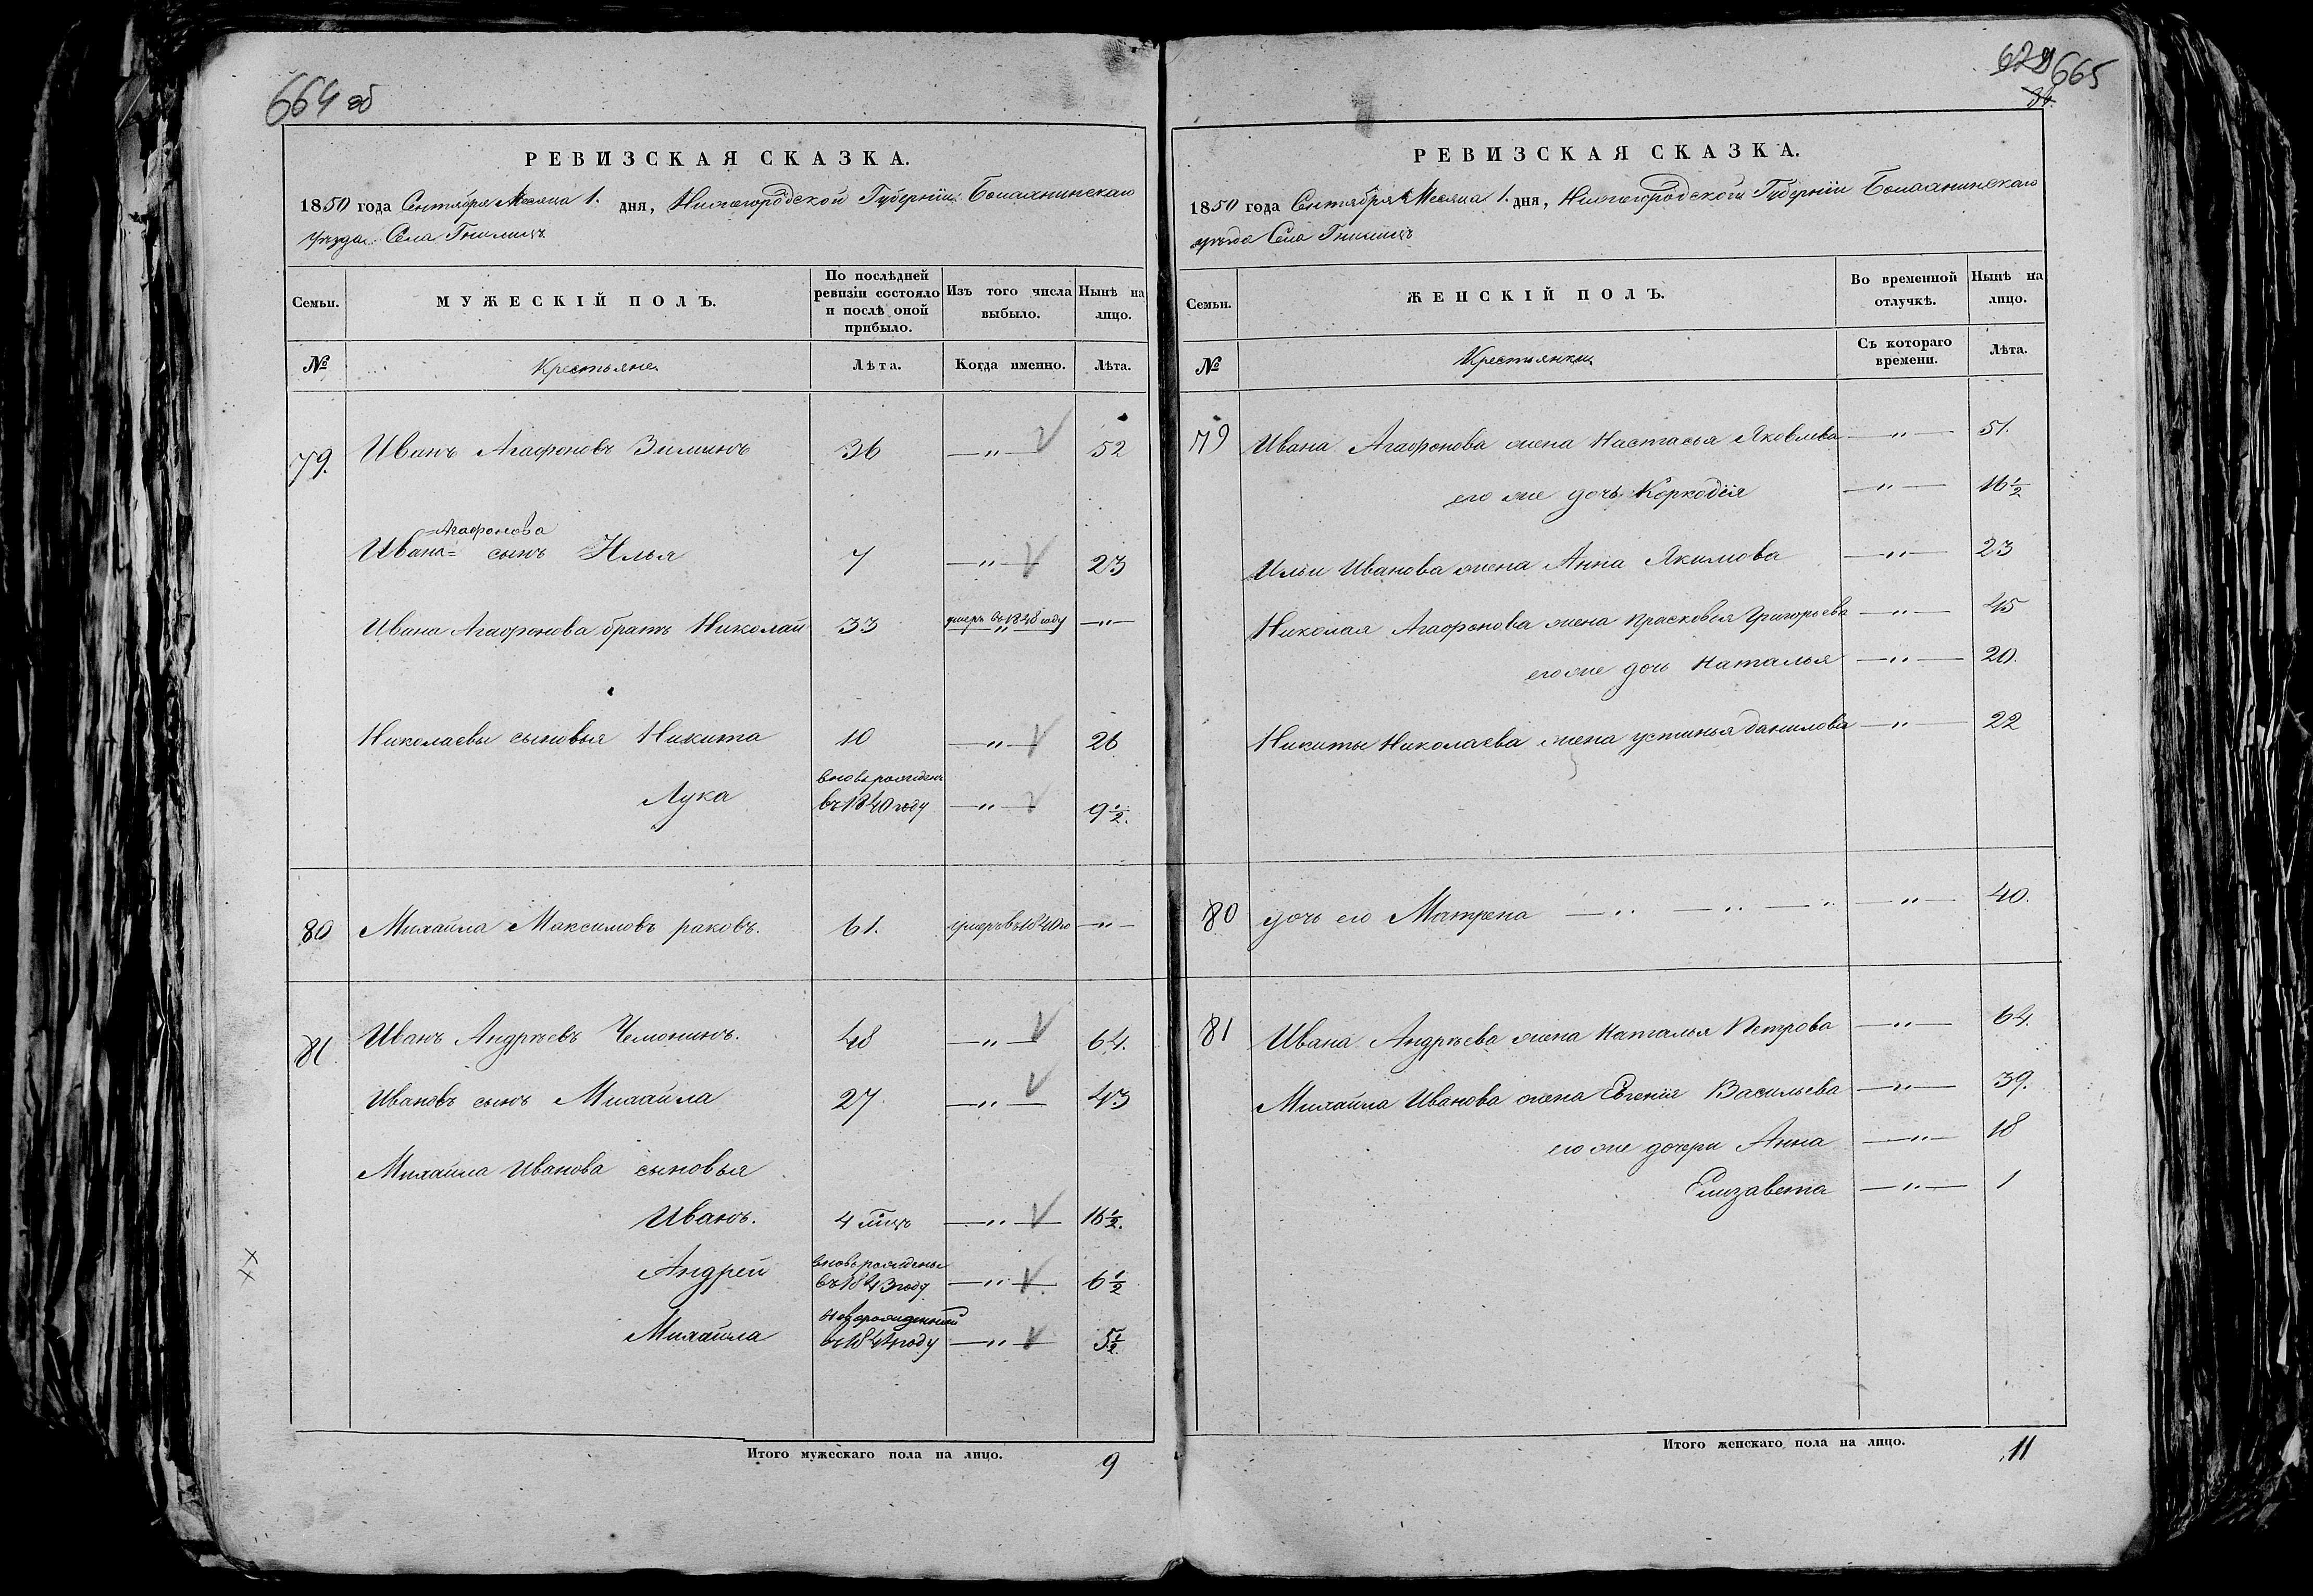 664 об
РЕВИЗСКАЯ СКАЗКА.
1850 года Сентября Месяца 1. дня, Нижегородской Губернiи Балахнинскаго
уѣзда Села Гнилицъ
Семьи.
МУЖЕСКIЙ ПОЛЪ.
По послѣдней ревизiи состояло и послѣ оной прибыло.
Изъ того числа выбыло.
Нынѣ на лицо.
№
Крестьяне
Лѣта.
Когда именно.
Лѣта.
79. Иванъ Агафоновъ Зиминъ 36 —"— 52
=Агафонова
Ивана= сынъ Илья 7 —"— 23
Ивана Агафонова братъ Николай 33 умеръ въ 1848 году —"—
Николаевы сыновья Никита 10 —"— 26
Лука вновь рожденъ въ 1840 году —"— 9 1/2.
80 Михайла Максимовъ раковъ. 61. умеръ въ 1840 го —"—
81. Иванъ Андрѣевъ Чемонинъ. 48 —"— 64.
Ивановъ сынъ Михайла 27 —"— 43
Михайла Иванова сыновья
Иванъ. 4 —"— 16 1/2.
Андрей вновь рожденъ въ 1843 году —"— 6 1/2
Михайла новорожденный въ 1844 году —"— 5 1/2.
Итого мужескаго пола на лицо. 9
629 665
РЕВИЗСКАЯ СКАЗКА.
1850 года Сентября Месяца 1. дня, Нижегородской Губернiи Балахнинскаго
уѣзда Села Гнилицъ
Семьи.
ЖЕНСКIЙ ПОЛЪ.
Во временной отлучкѣ.
Нынѣ на лицо.
№
Крестьянки
Съ котораго времени.
Лѣта.
79 Ивана Агафонова жена Настасья Яковлева —"— 51.
его же дочь Коркодiя —"— 16 1/2
Ильи Иванова жена Анна Якимова —"— 23
Николая Агафонова жена Прасковья Григорьева —"— 45
его же дочь Наталья —"— 20.
Никиты Николаева жена устинья данилова —"— 22
80 дочь его Матрена —"— —"— —"— —"— 40.
81 Ивана Андрѣева жена Наталья Петрова —"— 64.
Михайла Иванова жена Евгенiя Васильева —"— 39.
его же дочери Анна —"— 18
Елизавета —"— 1
Итого женскаго пола на лицо. 11